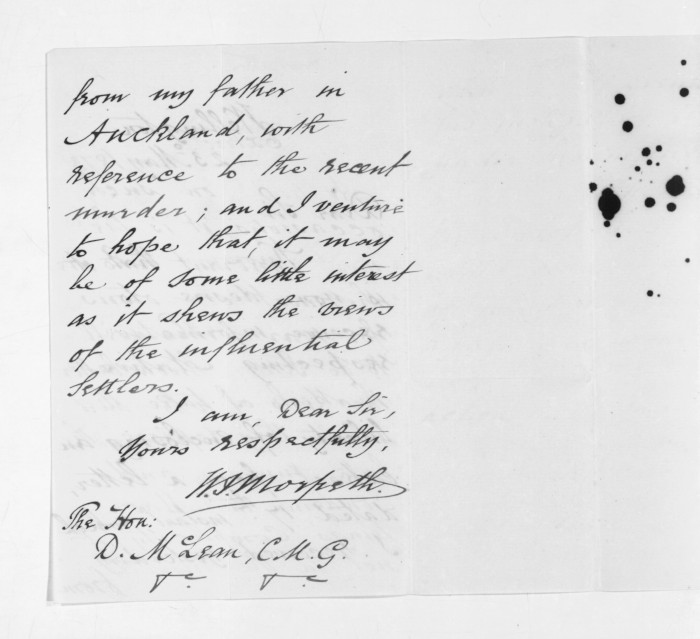 from my father in
Auckland, with
reference to the recent
murder; and I venture
to hope that, it may
be of some little interest
as it shews the views
of the influential
Settlers.
I am, Dear Sir,
Yours respectfully,
W.J. Morpeth.
The Hon:
D. McLean, C.M.G.
&c &c